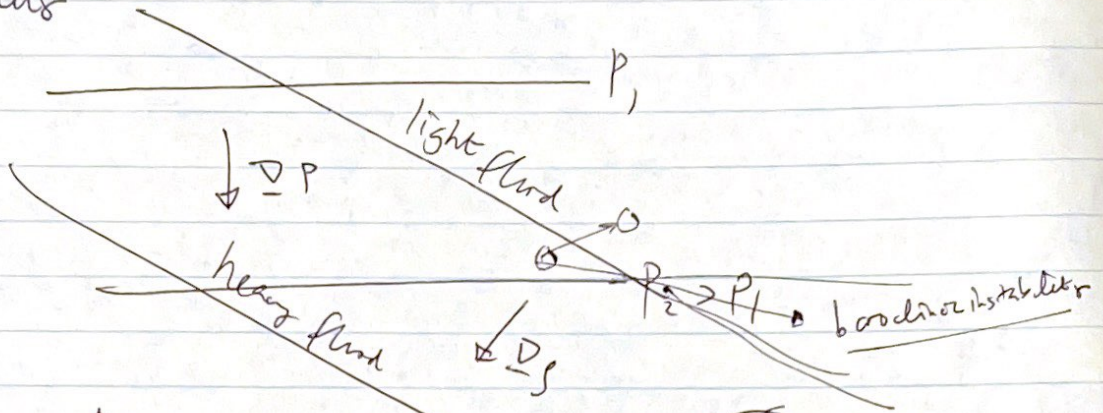 P₁
light fluid
∇P
heavy fluid
P₂ > P₁
baroclinic instability
∇ρ